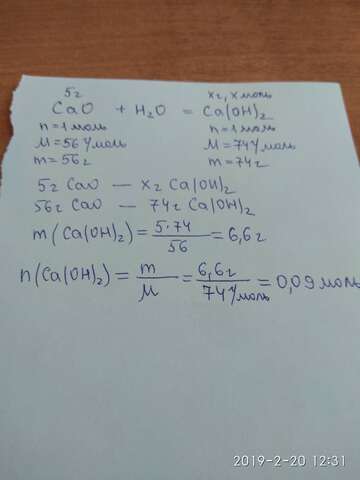 5г х г, х моль
CaO + H₂O = Ca(OH)₂
n = 1 моль n = 1 моль
M = 56 г/моль M = 74 г/моль
m = 56 г m = 74 г
5г CaO — х г Ca(OH)₂
56г CaO — 74 г Ca(OH)₂
m (Ca(OH)₂) = 5·74 / 56 = 6,6 г
n (Ca(OH)₂) = m / M = 6,6 г / 74 г/моль = 0,09 моль
2019-2-20 12:31